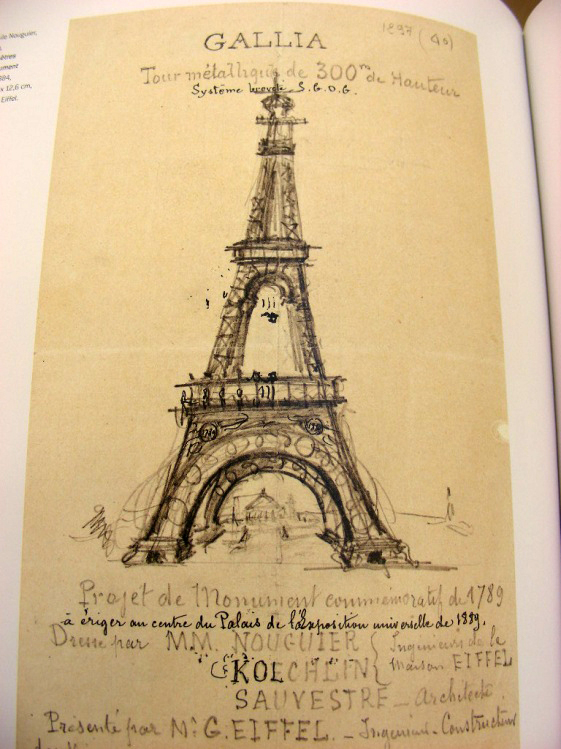 de Nouguier,
1884,
x 12,6 cm,
Eiffel.
GALLIA
Tour métallique de 300m de Hauteur
Système breveté S.G.D.G.
Projet de Monument commémoratif de 1789
à ériger au centre du Palais de l'Exposition universelle de 1889.
Dressé par MM. NOUGUIER { Ingénieurs de la
& KOECHLIN { Maison EIFFEL
SAUVESTRE _ Architecte.
Présenté par Mr G. EIFFEL. _ Ingénieur - Constructeur